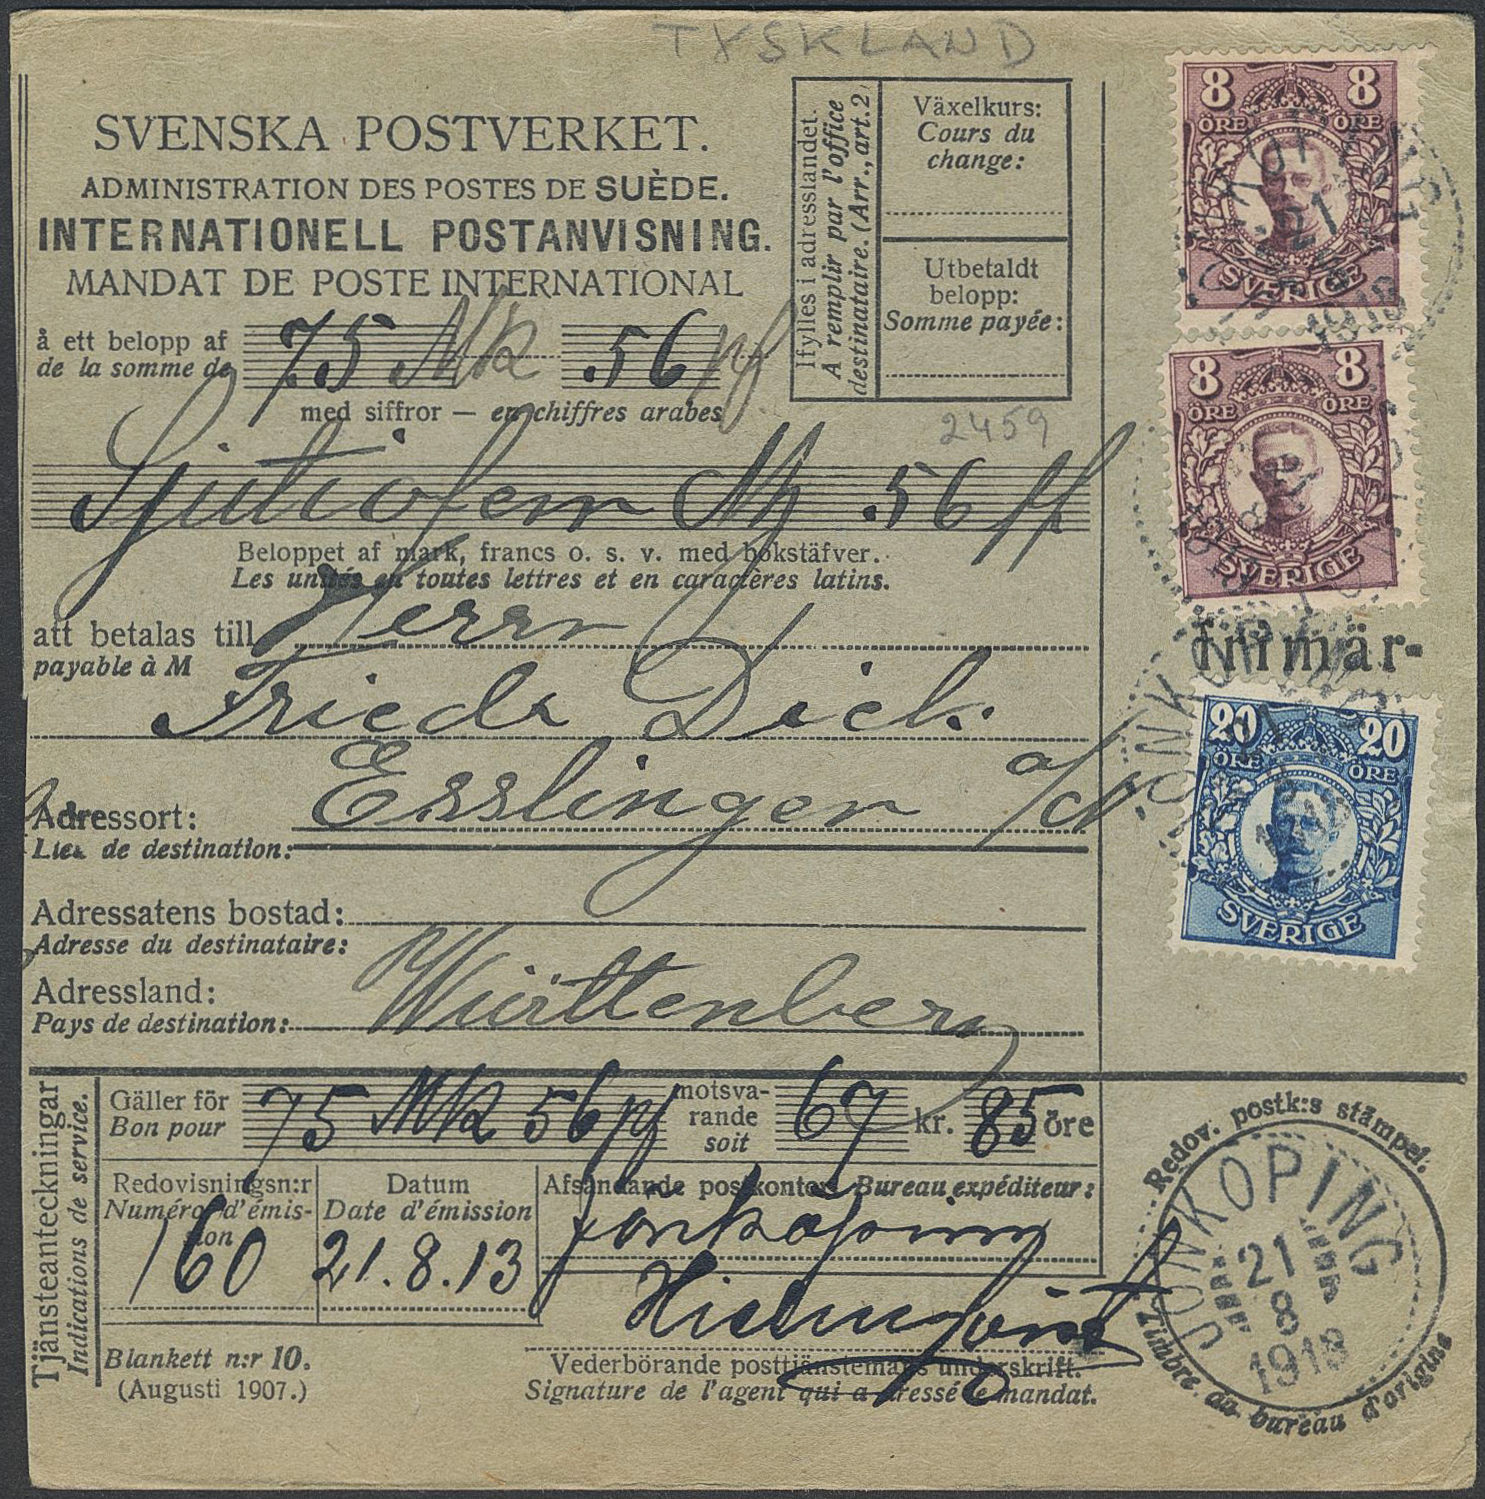 TYSKLAND
SVENSKA POSTVERKET.
ADMINISTRATION DES POSTES DE SUÈDE.
INTERNATIONELL POSTANVISNING.
MANDAT DE POSTE INTERNATIONAL
å ett belopp af
de la somme de
75 Mk 56 pf
med siffror — en chiffres arabes
Sjutiofem Mk 56 pf
Beloppet af mark, francs o. s. v. med bokstäfver.
Les unités en toutes lettres et en caractères latins.
att betalas till
payable à M
Herrn
Friedr Dick
Adressort:
Lieu de destination:
Esslingen a/N.
Adressatens bostad:
Adresse du destinataire:
Adressland:
Pays de destination:
Württenberg
Ifylles i adresslandet.
A remplir par l'office
destinataire. (Arr., art. 2)
Växelkurs:
Cours du
change:
Utbetaldt
belopp:
Somme payée:
2459
8 8
ÖRE ÖRE
SVERIGE
8 8
ÖRE ÖRE
SVERIGE
20 20
ÖRE ÖRE
SVERIGE
Tjänsteanteckningar
Indications de service.
Gäller för
Bon pour
75 Mk 56 pf
motsva-
rande
soit
67 kr. 85 öre
Redovisningsn:r
Numéro d'émis-
sion
160
Datum
Date d'émission
21.8.13
Afsändande postkontor. Bureau expéditeur:
Jönköping
Vederbörande posttjänstemans underskrift.
Signature de l'agent qui a dressé le mandat.
Blankett n:r 10.
(Augusti 1907.)
Redov. postk:s stämpel.
JÖNKÖPING
21
8
1913
Timbre du bureau d'origine